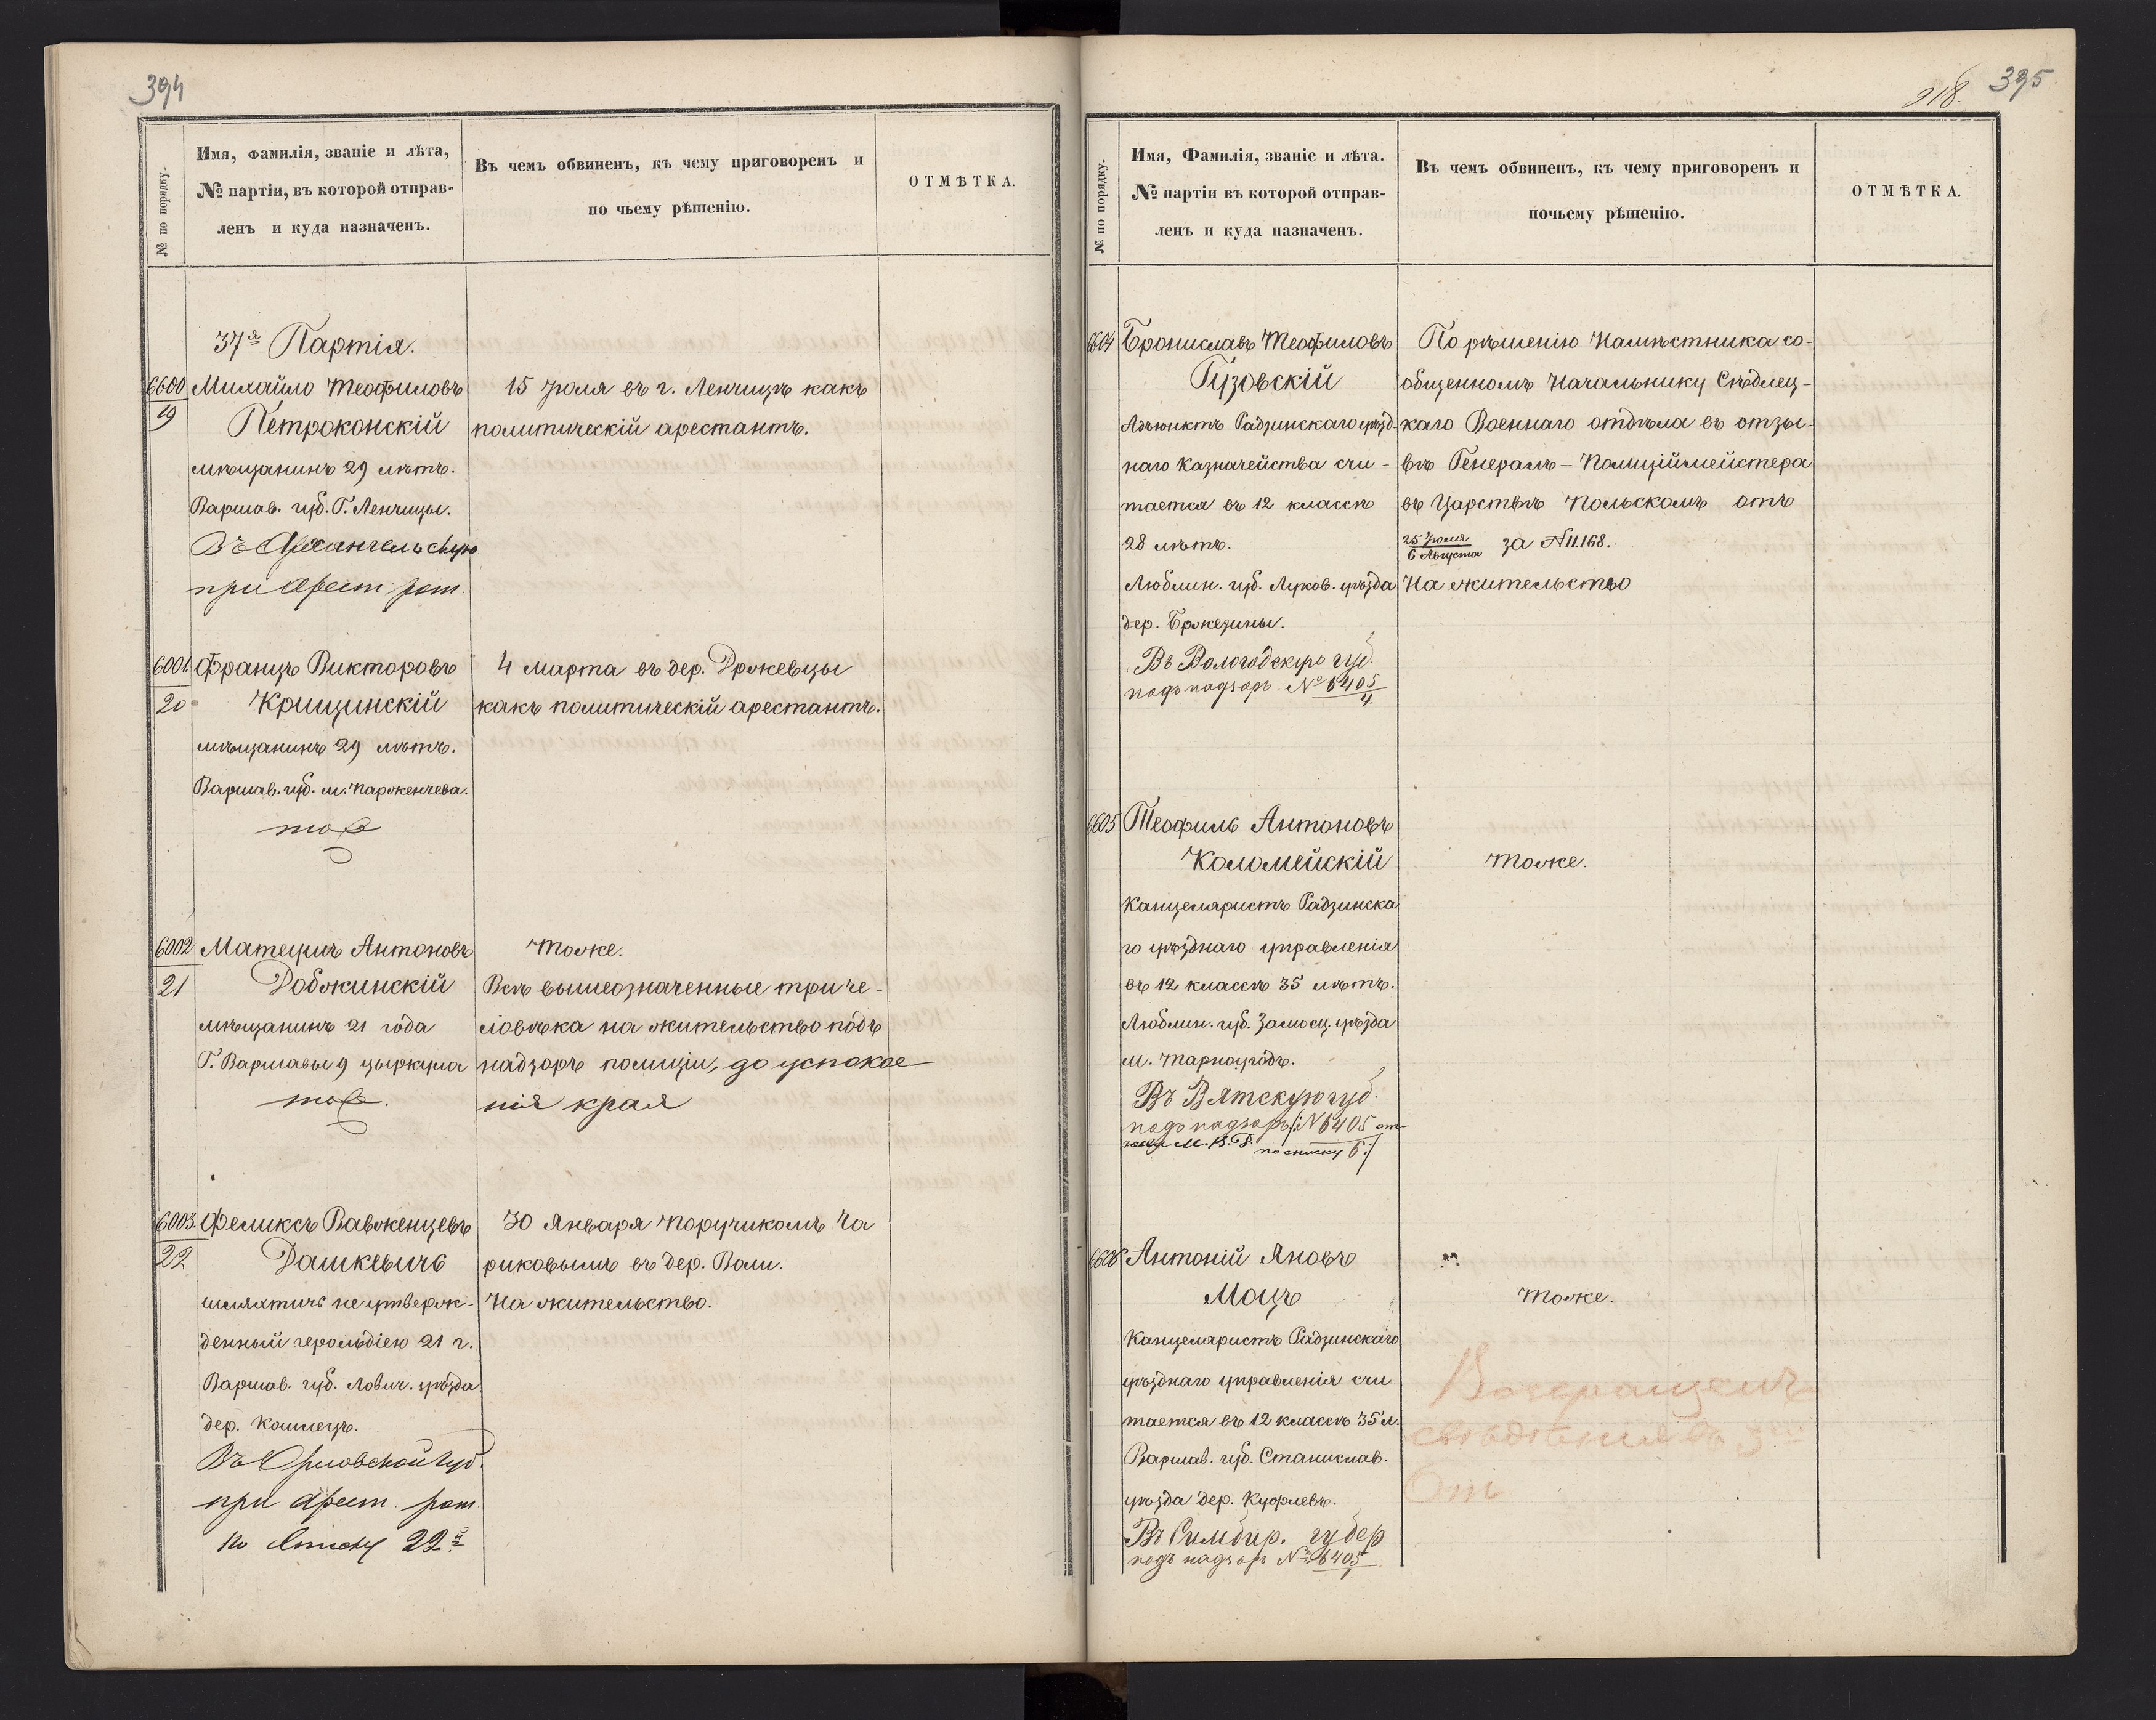 394
№ по порядку.
Имя, фамилія, званіе и лѣта,
№ партіи, въ которой отправ-
ленъ и куда назначенъ.
Въ чемъ обвиненъ, къ чему приговоренъ и
по чьему рѣшенію.
ОТМѢТКА.
37я Партія.
6600
19
Михайло Теофиловъ
Петроконскій
мѣщанинъ 29 лѣтъ.
Варшав. губ. Г. Ленчицы.
Въ Архангельскую
при арест. рот.
15 Іюля въ г. Ленчицѣ какъ
политическій арестантъ.
6001.
20
Францъ Викторовъ
Крищинскій
мѣщанинъ 29 лѣтъ.
Варшав. губ. м. Парженчева.
тоже
4 Марта въ дер. Држевцы
какъ политическій арестантъ.
6002
21
Матеушъ Антоновъ
Добжинскій
мѣщанинъ 21 года
Г. Варшавы 9 цыркула
тоже.
Тоже.
Всѣ вышеозначенные три че-
ловѣка на жительство подъ
надзоръ полиціи, до успокое
нія края
6003.
22
Феликсъ Вавженцевъ
Дашкевичъ
шляхтичъ не утверж-
денный герольдіею 21 г.
Варшав. губ. Лович. уѣзда
дер. Компецъ.
Въ Орловской губ.
при арест. рот.
по списку 22й
30 Января Поручикомъ Ча
риковымъ въ дер. Воли.
На жительство.
918.
395
№ по порядку.
Имя, Фамилія, званіе и лѣта.
№ партіи въ которой отправ-
ленъ и куда назначенъ.
Въ чемъ обвиненъ, къ чему приговоренъ и
почьему рѣшенію.
ОТМѢТКА.
6604
Брониславъ Теофиловъ
Гузовскій
Адъюнктъ Радзинскаго уѣзд-
наго Казначейства счи-
тается въ 12 классѣ
28 лѣтъ.
Люблин. губ. Луков. уѣзда
дер. Бржезины.
Въ Вологодскую губ.
подъ надзоръ № 6405
4.
По рѣшенію Намѣстника со-
общенномъ Начальнику Сѣдлец-
каго Военнаго отдѣла въ отзы-
вѣ Генералъ-Полиціймейстера
въ Царствѣ Польскомъ отъ
25 Іюля
6 Августа за № 11.168.
На жительство
6605
Теофиль Антоновъ
Коломейскій
Канцеляристъ Радзинска
го уѣзднаго управленія
въ 12 классѣ 35 лѣтъ.
Люблин. губ. Замосц. уѣзда
м. Тарногродъ.
Въ Вятскую губ.
подъ надзоръ /:№ 6405 от
М. В. Д. по списку 6:/
Тоже.
6606
Антоній Яновъ
Моцъ
Канцеляристъ Радзинскаго
уѣзднаго управленія счи
тается въ 12 классѣ 35 л.
Варшав. губ. Станислав.
уѣзда дер. Куфлевъ.
Въ Симбир. губер
подъ надзоръ № 6405
Тоже.
Возвращенъ
От